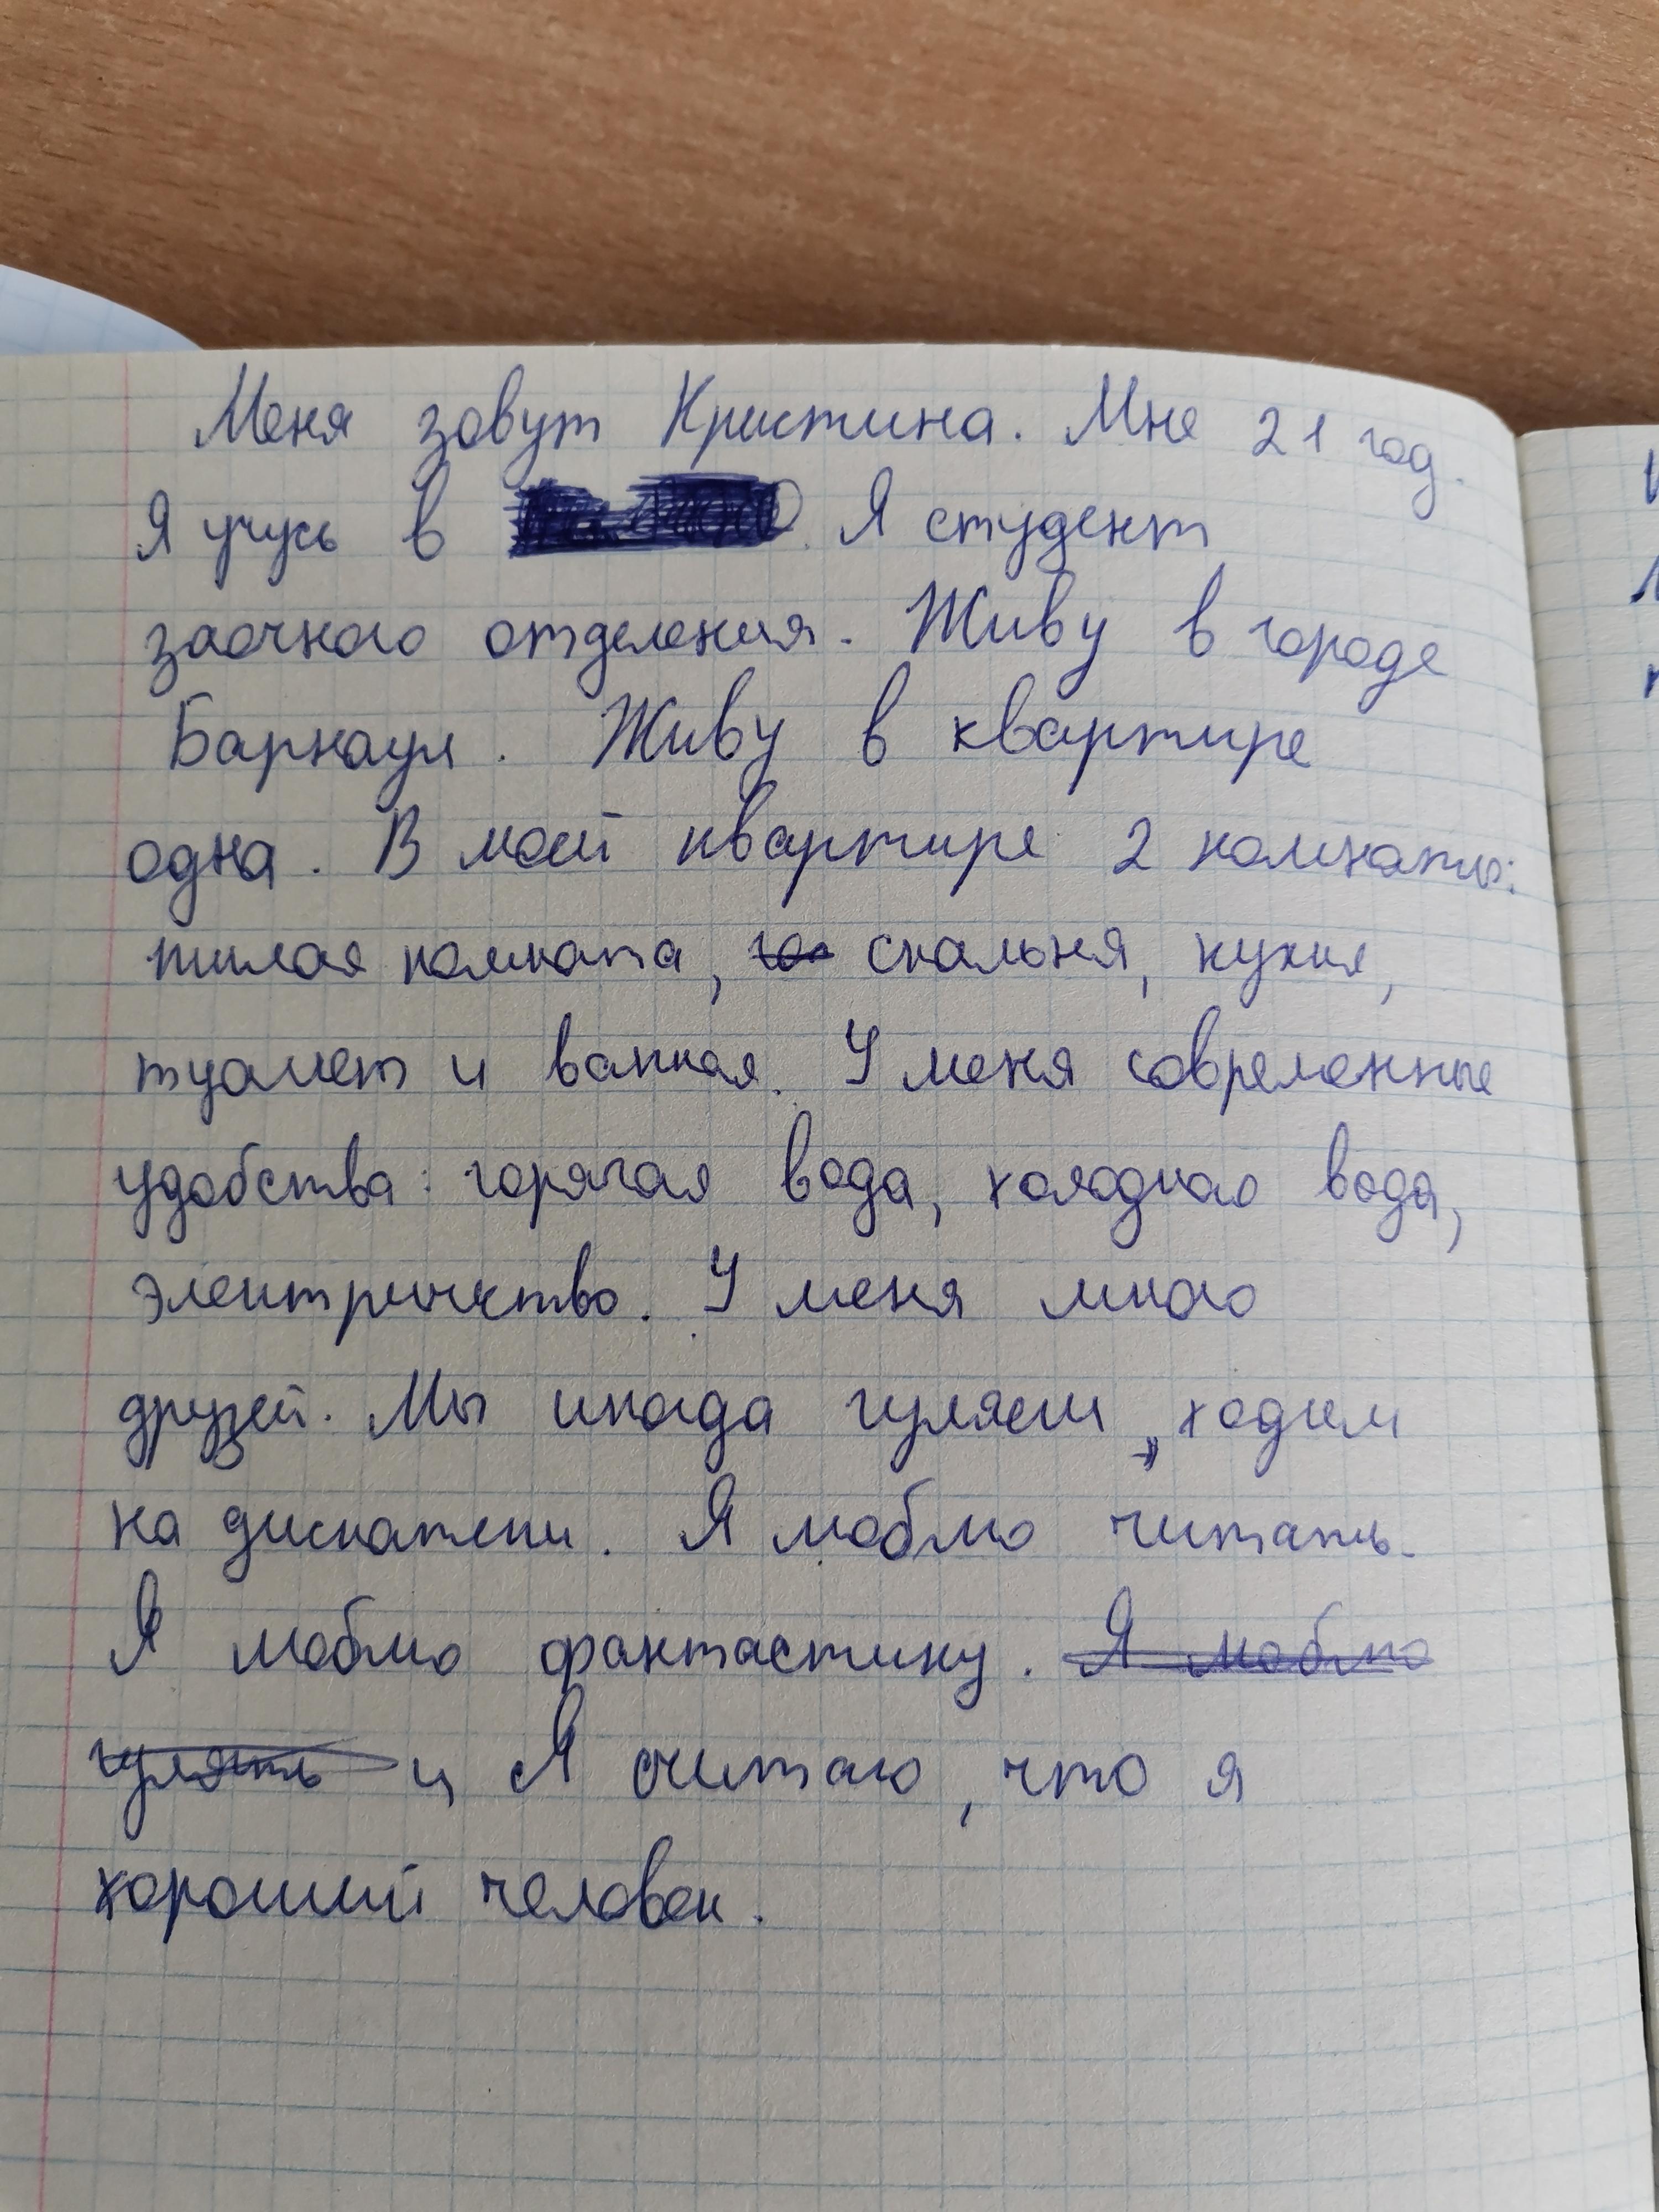 Меня зовут Кристина. Мне 21 год.
Я учусь в . Я студент
заочного отделения. Живу в городе
Барнаул. Живу в квартире
одна. В моей квартире 2 комнаты:
жилая комната, спальня, кухня,
туалет и ванная. У меня современные
удобства: горячая вода, холодная вода,
электричество. У меня много
друзей. Мы иногда гуляем, ходим
на дискотеки. Я люблю читать.
Я люблю фантастику. Я люблю
гулять и Я считаю, что я
хороший человек.